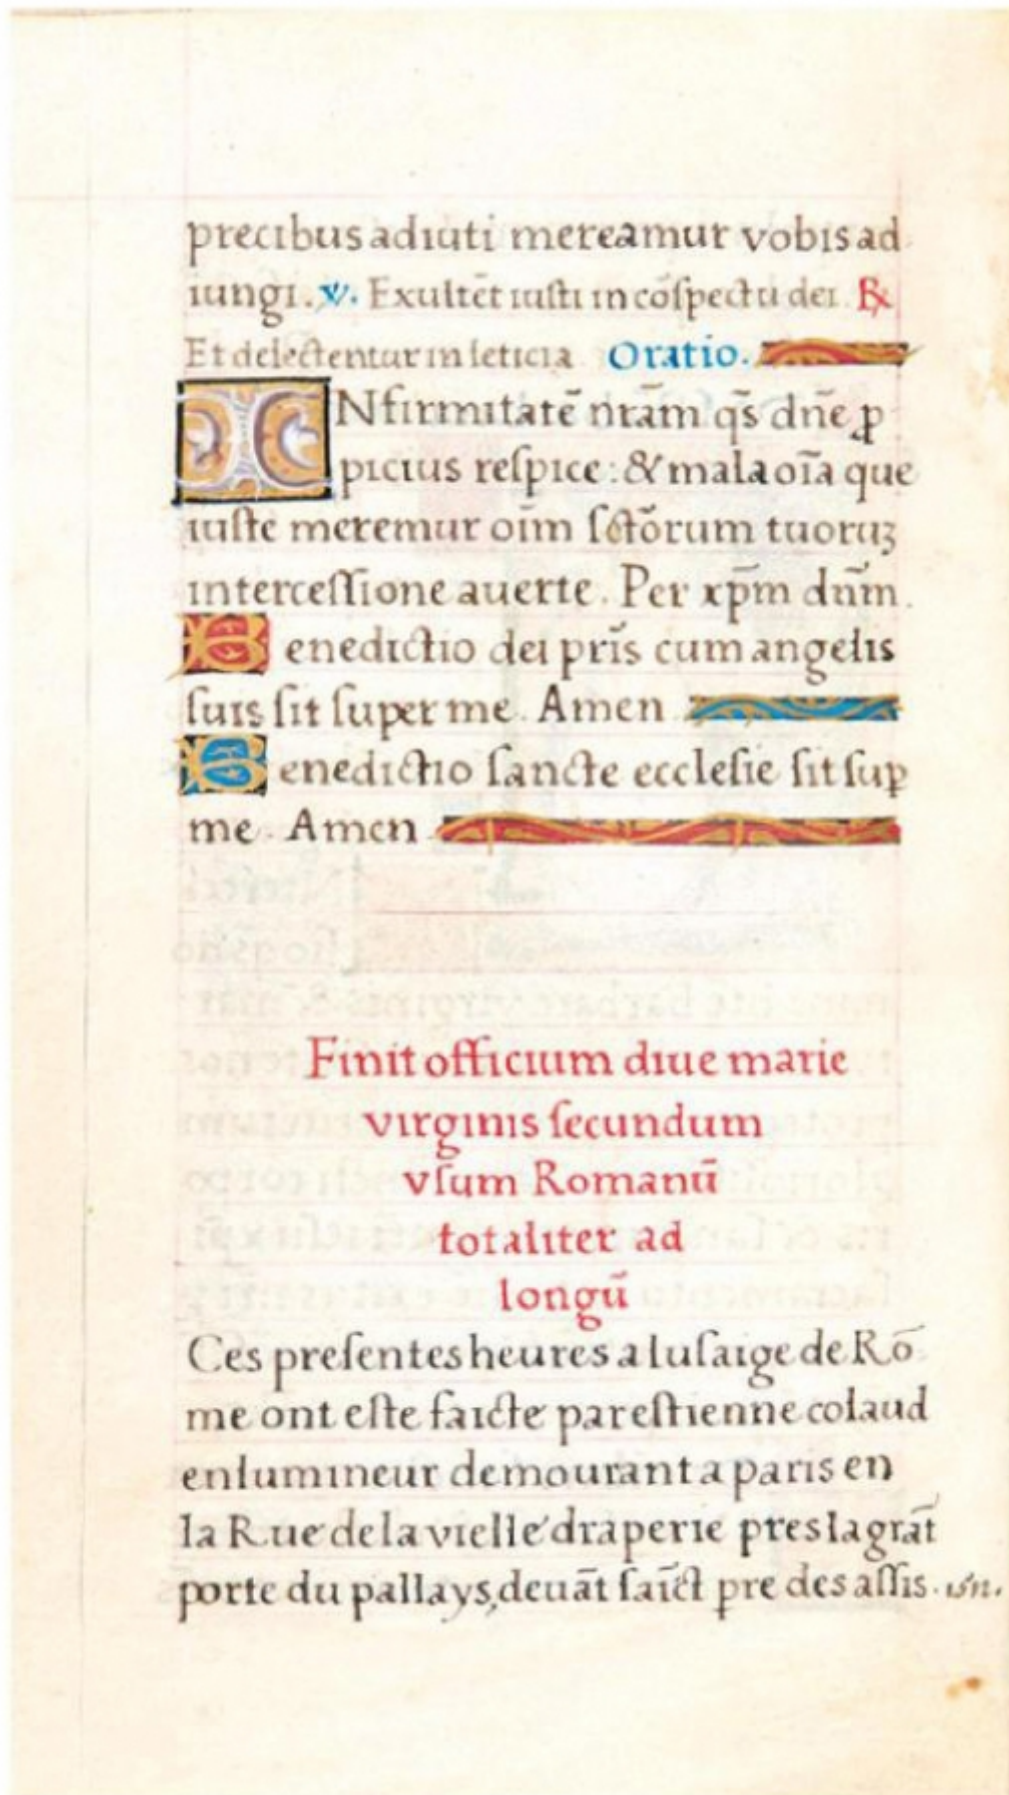 precibus adiuti mereamur vobis ad
iungi. ℣. Exultēt iusti in cōspectu dei. ℟
Et delectentur in leticia. Oratio.
INfirmitatē nr̄am qs̄ dn̄e ꝓ
picius reſpice: & mala oīa que
iuſte meremur oīm ſctōrum tuoruꝫ
interceſſione auerte. Per xp̄m dn̄m.
Benedictio dei pr̄is cum angelis
ſuis ſit ſuper me. Amen
Benedictio ſancte eccleſie ſit ſuꝑ
me. Amen
Finit officium diue marie
virginis ſecundum
vſum Romanū
totaliter ad
longū
Ces preſentes heures a luſaige de Rō
me ont eſte faicte par eſtienne colaud
enlumineur demourant a paris en
la Rue de la vielle draperie pres la grāt
porte du pallays, deuāt ſaīct pre des aſſis.